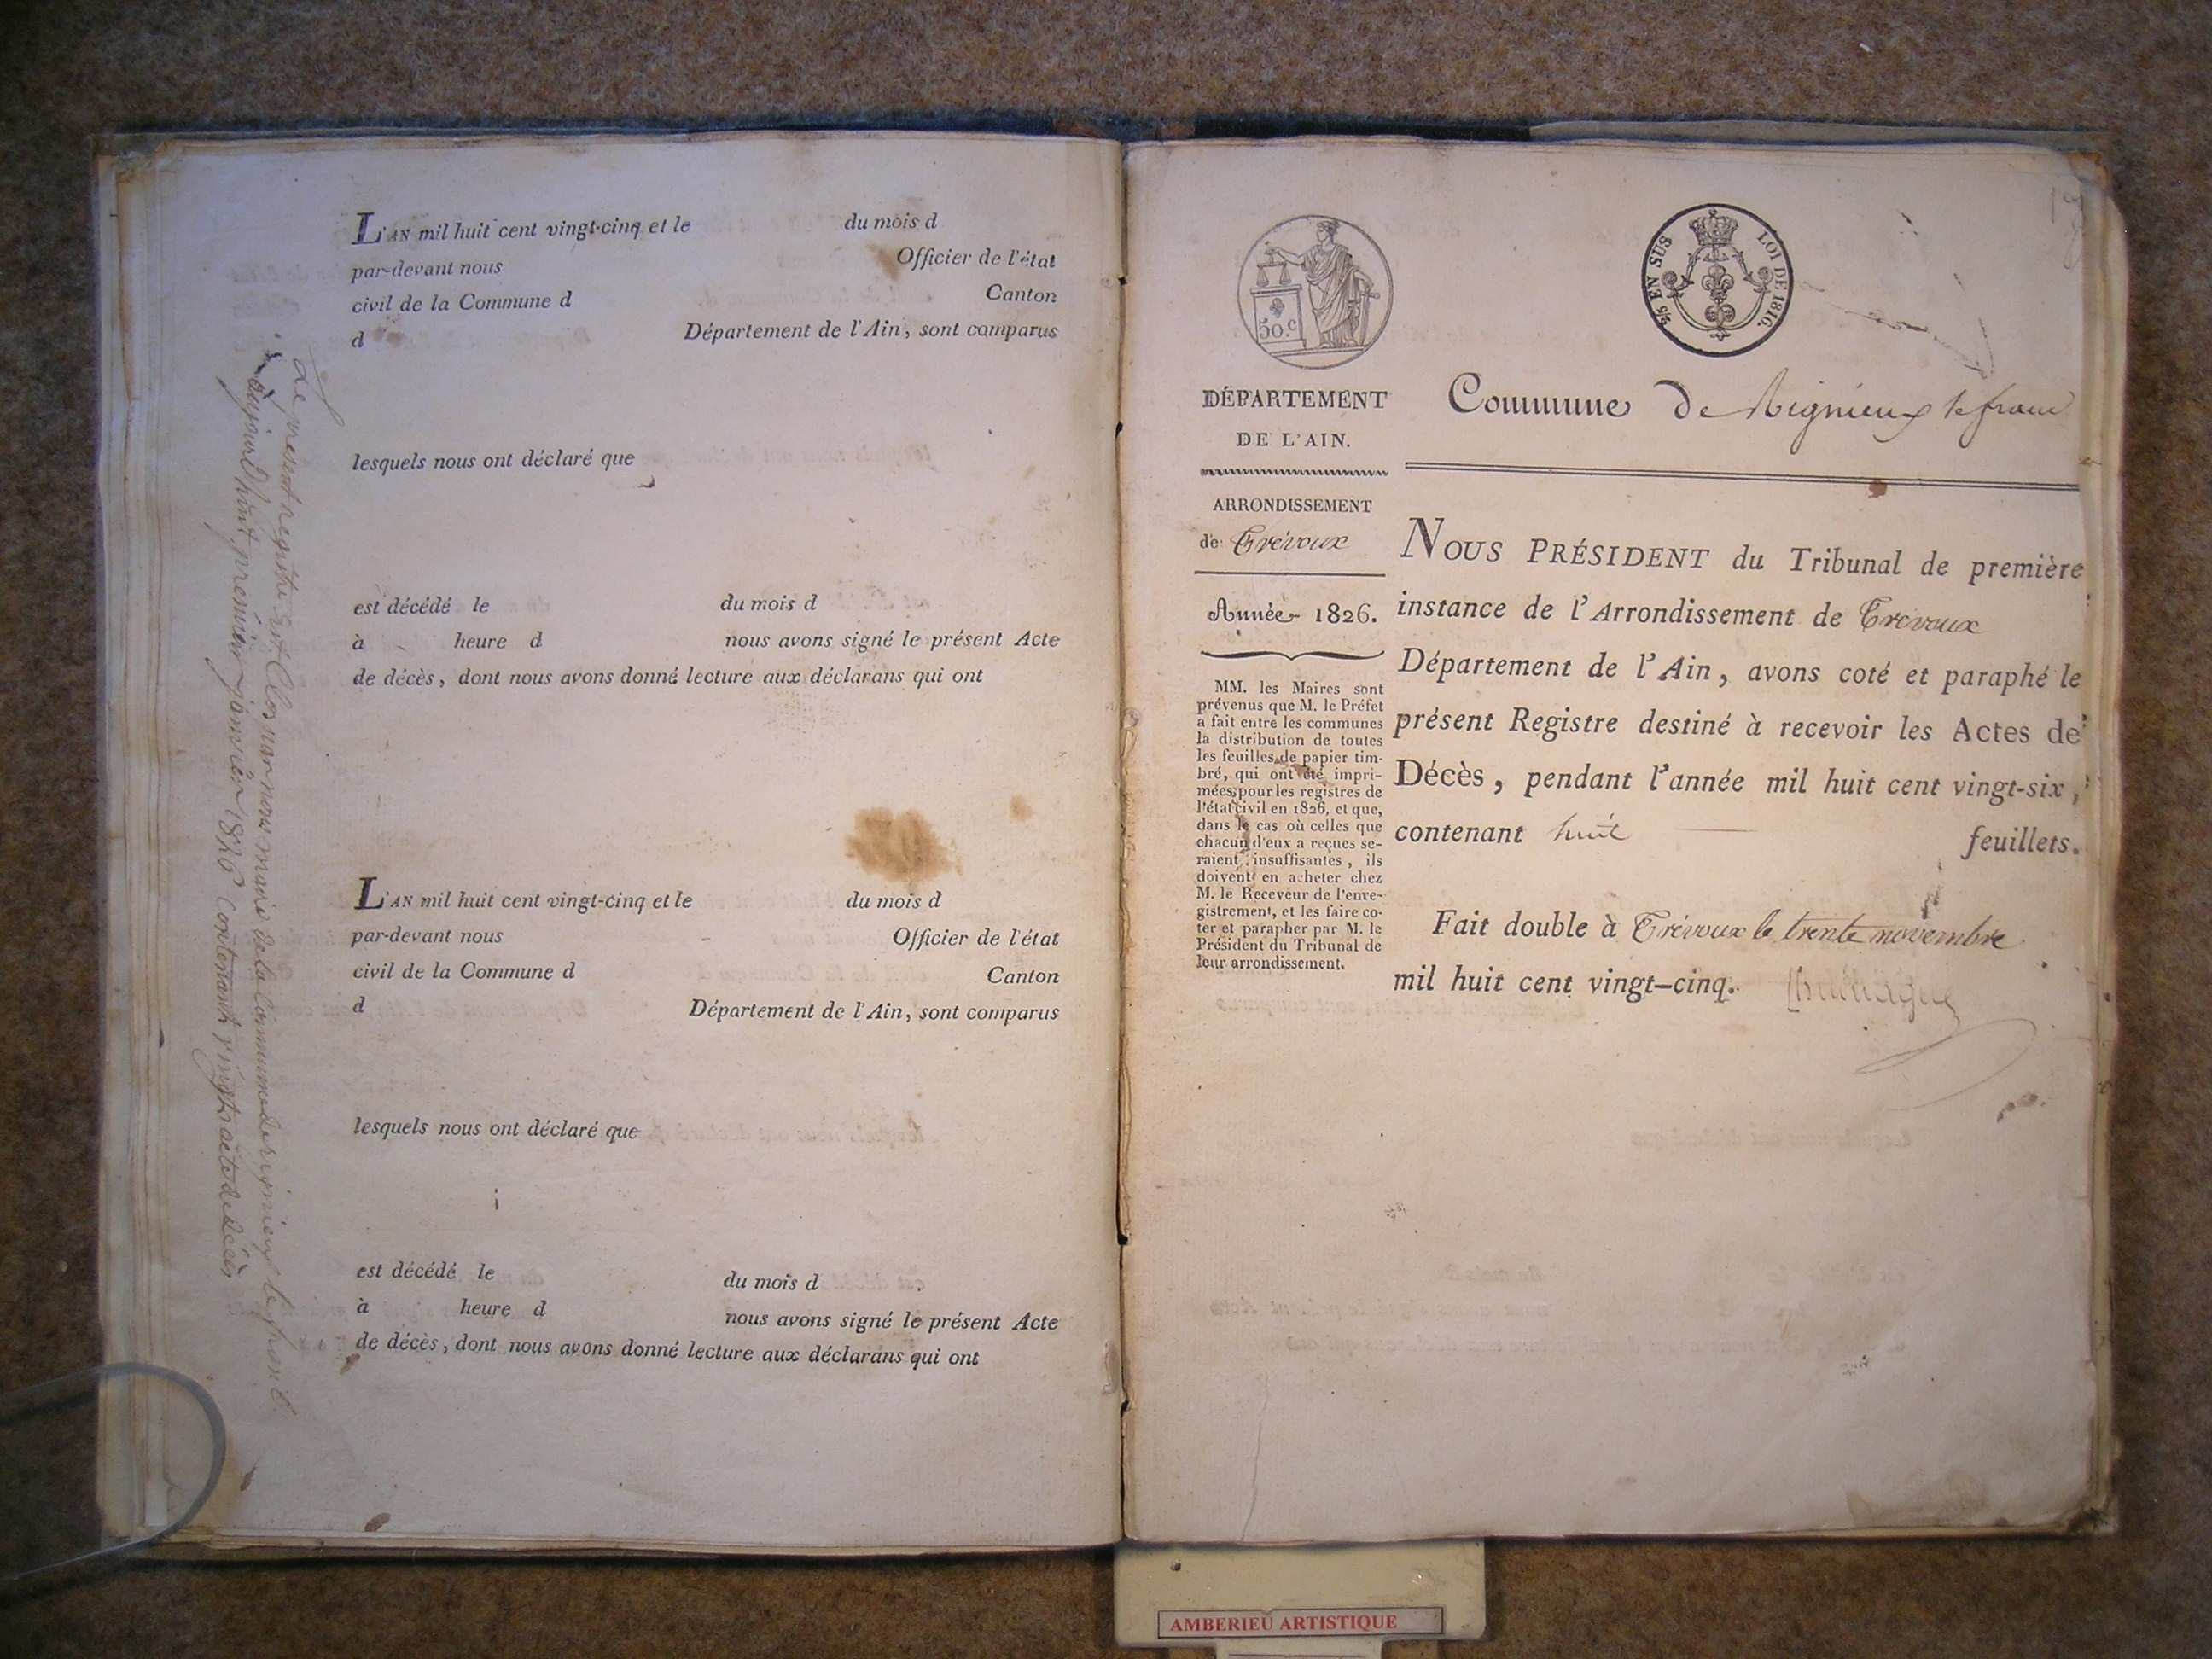 L'AN mil huit cent vingt-cinq et le du mois d
par-devant nous Officier de l'état
civil de la Commune d Canton
d Département de l'Ain, sont comparus
lesquels nous ont déclaré que
est décédé le du mois d
à heure d nous avons signé le présent Acte
de décès, dont nous avons donné lecture aux déclarans qui ont
L'AN mil huit cent vingt-cinq et le du mois d
par-devant nous Officier de l'état
civil de la Commune d Canton
d Département de l'Ain, sont comparus
lesquels nous ont déclaré que
est décédé le du mois d
à heure d nous avons signé le présent Acte
de décès, dont nous avons donné lecture aux déclarans qui ont
Le présent registre est Clos par nous maire de la Commune de rignieux le franc
aujourd'huit premier janvier 1826 Contenant vingt acte de décès
50.c
2/5 EN SUS LOI DE 1816.
DÉPARTEMENT
DE L'AIN.
ARRONDISSEMENT
de Trévoux
Année 1826.
MM. les Maires sont
prévenus que M. le Préfet
a fait entre les communes
la distribution de toutes
les feuilles de papier tim-
bré, qui ont été impri-
mées pour les registres de
l'état civil en 1826, et que,
dans le cas où celles que
chacun d'eux a reçues se-
raient insuffisantes, ils
doivent en acheter chez
M. le Receveur de l'enre-
gistrement, et les faire co-
ter et parapher par M. le
Président du Tribunal de
leur arrondissement.
Commune de Rignieux le franc
NOUS PRÉSIDENT du Tribunal de première
instance de l'Arrondissement de Trévoux
Département de l'Ain, avons coté et paraphé le
présent Registre destiné à recevoir les Actes de
Décès, pendant l'année mil huit cent vingt-six,
contenant huit feuillets.
Fait double à Trévoux le trente novembre
mil huit cent vingt-cinq.
AMBERIEU ARTISTIQUE